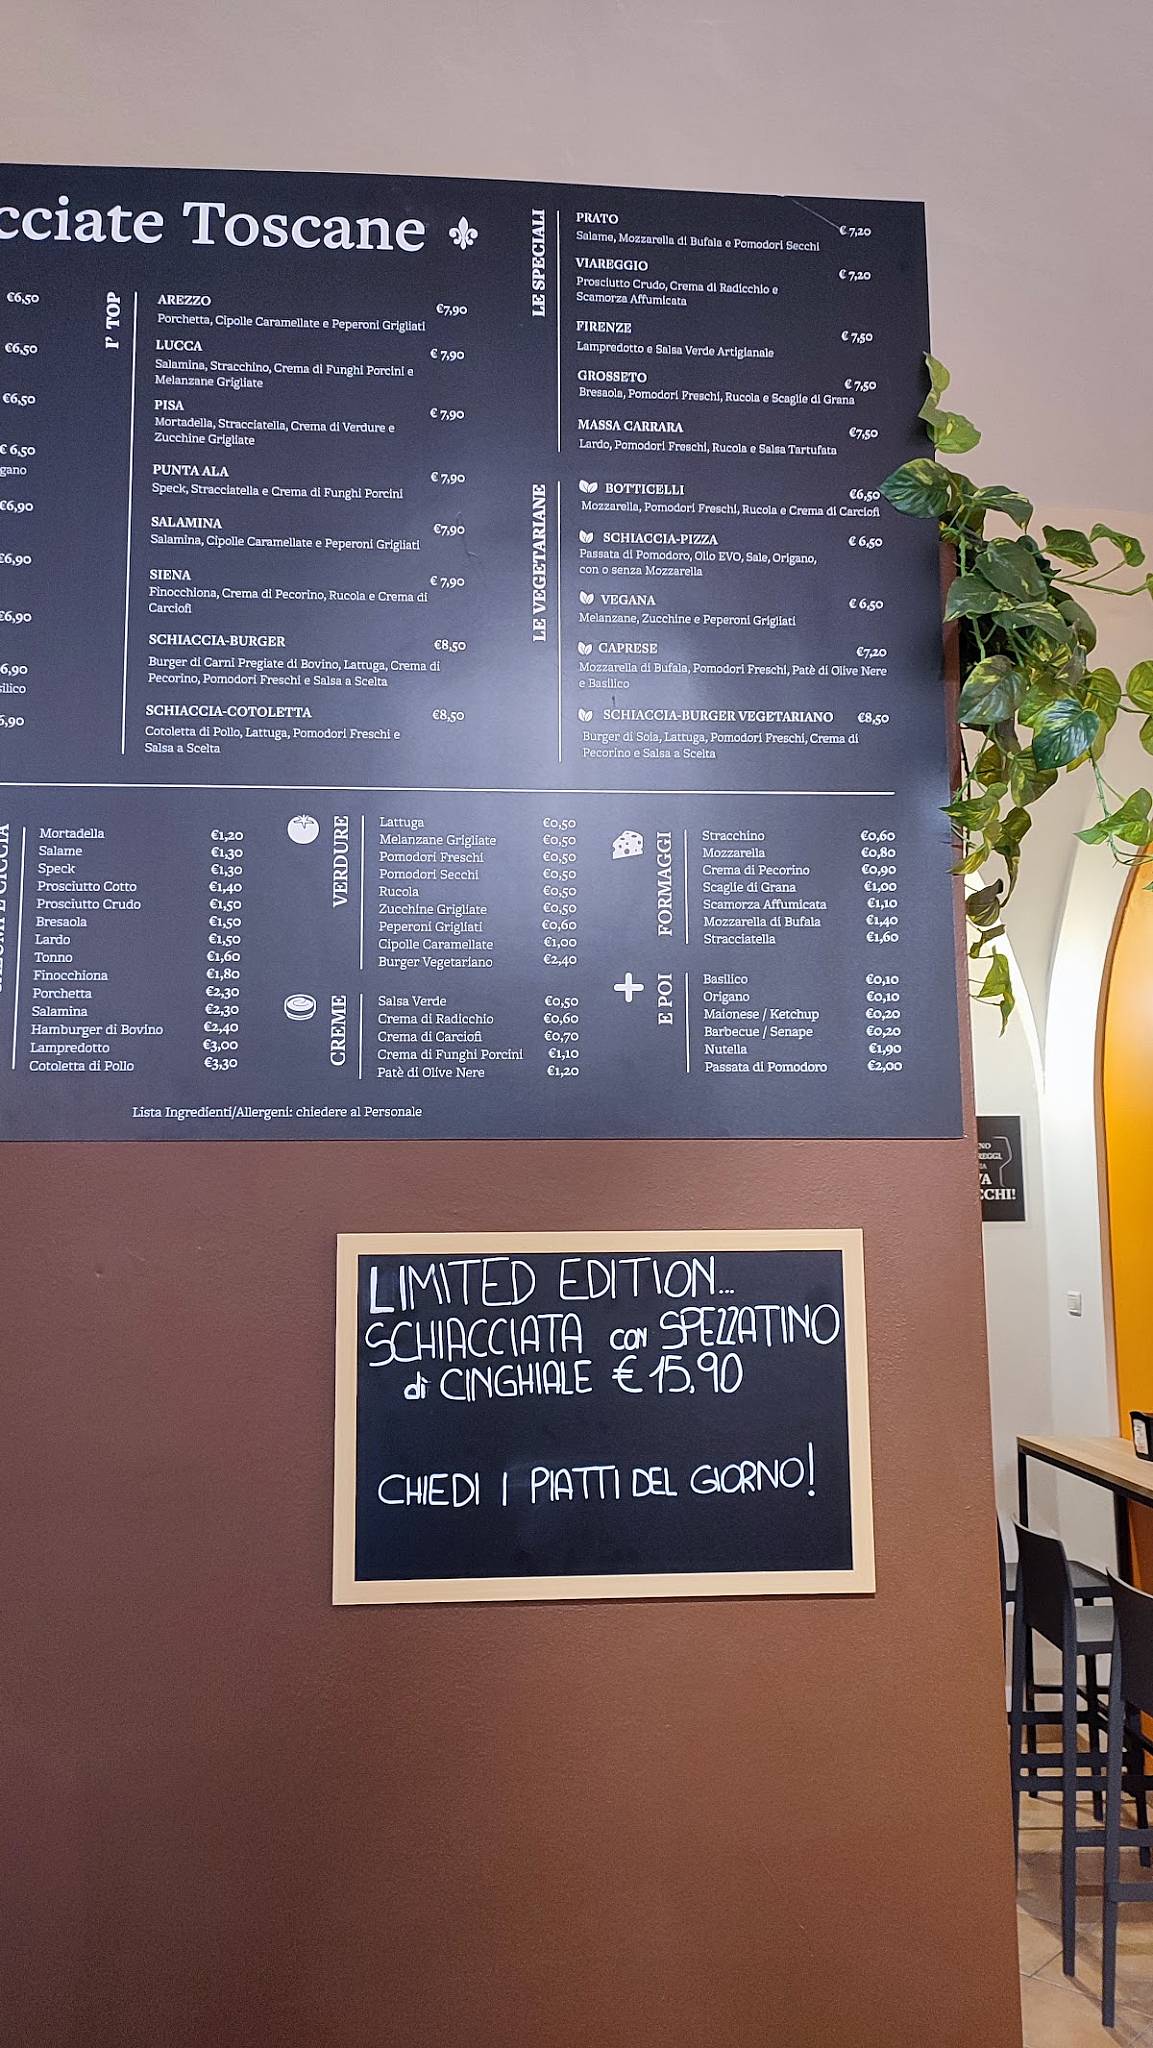 cciate Toscane
€6,50
€6,50
€6,50
€6,50
gano
€6,90
€6,90
€6,90
6,90
silico
6,90
I' TOP
AREZZO €7,90
Porchetta, Cipolle Caramellate e Peperoni Grigliati
LUCCA € 7,90
Salamina, Stracchino, Crema di Funghi Porcini e
Melanzane Grigliate
PISA € 7,90
Mortadella, Stracciatella, Crema di Verdure e
Zucchine Grigliate
PUNTA ALA € 7,90
Speck, Stracciatella e Crema di Funghi Porcini
SALAMINA €7,90
Salamina, Cipolle Caramellate e Peperoni Grigliati
SIENA € 7,90
Finocchiona, Crema di Pecorino, Rucola e Crema di
Carciofi
SCHIACCIA-BURGER €8,50
Burger di Carni Pregiate di Bovino, Lattuga, Crema di
Pecorino, Pomodori Freschi e Salsa a Scelta
SCHIACCIA-COTOLETTA €8,50
Cotoletta di Pollo, Lattuga, Pomodori Freschi e
Salsa a Scelta
LE SPECIALI
PRATO € 7,20
Salame, Mozzarella di Bufala e Pomodori Secchi
VIAREGGIO € 7,20
Prosciutto Crudo, Crema di Radicchio e
Scamorza Affumicata
FIRENZE € 7,50
Lampredotto e Salsa Verde Artigianale
GROSSETO € 7,50
Bresaola, Pomodori Freschi, Rucola e Scaglie di Grana
MASSA CARRARA €7,50
Lardo, Pomodori Freschi, Rucola e Salsa Tartufata
LE VEGETARIANE
BOTTICELLI €6,50
Mozzarella, Pomodori Freschi, Rucola e Crema di Carciofi
SCHIACCIA-PIZZA € 6,50
Passata di Pomodoro, Olio EVO, Sale, Origano,
con o senza Mozzarella
VEGANA € 6,50
Melanzane, Zucchine e Peperoni Grigliati
CAPRESE €7,20
Mozzarella di Bufala, Pomodori Freschi, Patè di Olive Nere
e Basilico
SCHIACCIA-BURGER VEGETARIANO €8,50
Burger di Soia, Lattuga, Pomodori Freschi, Crema di
Pecorino e Salsa a Scelta
Mortadella €1,20
Salame €1,30
Speck €1,30
Prosciutto Cotto €1,40
Prosciutto Crudo €1,50
Bresaola €1,50
Lardo €1,50
Tonno €1,60
Finocchiona €1,80
Porchetta €2,30
Salamina €2,30
Hamburger di Bovino €2,40
Lampredotto €3,00
Cotoletta di Pollo €3,30
VERDURE
Lattuga €0,50
Melanzane Grigliate €0,50
Pomodori Freschi €0,50
Pomodori Secchi €0,50
Rucola €0,50
Zucchine Grigliate €0,50
Peperoni Grigliati €0,60
Cipolle Caramellate €1,00
Burger Vegetariano €2,40
CREME
Salsa Verde €0,50
Crema di Radicchio €0,60
Crema di Carciofi €0,70
Crema di Funghi Porcini €1,10
Patè di Olive Nere €1,20
FORMAGGI
Stracchino €0,60
Mozzarella €0,80
Crema di Pecorino €0,90
Scaglie di Grana €1,00
Scamorza Affumicata €1,10
Mozzarella di Bufala €1,40
Stracciatella €1,60
E POI
Basilico €0,10
Origano €0,10
Maionese / Ketchup €0,20
Barbecue / Senape €0,20
Nutella €1,90
Passata di Pomodoro €2,00
Lista Ingredienti/Allergeni: chiedere al Personale
CCHI!
LIMITED EDITION...
SCHIACCIATA con SPEZZATINO
di CINGHIALE € 15,90
CHIEDI I PIATTI DEL GIORNO!